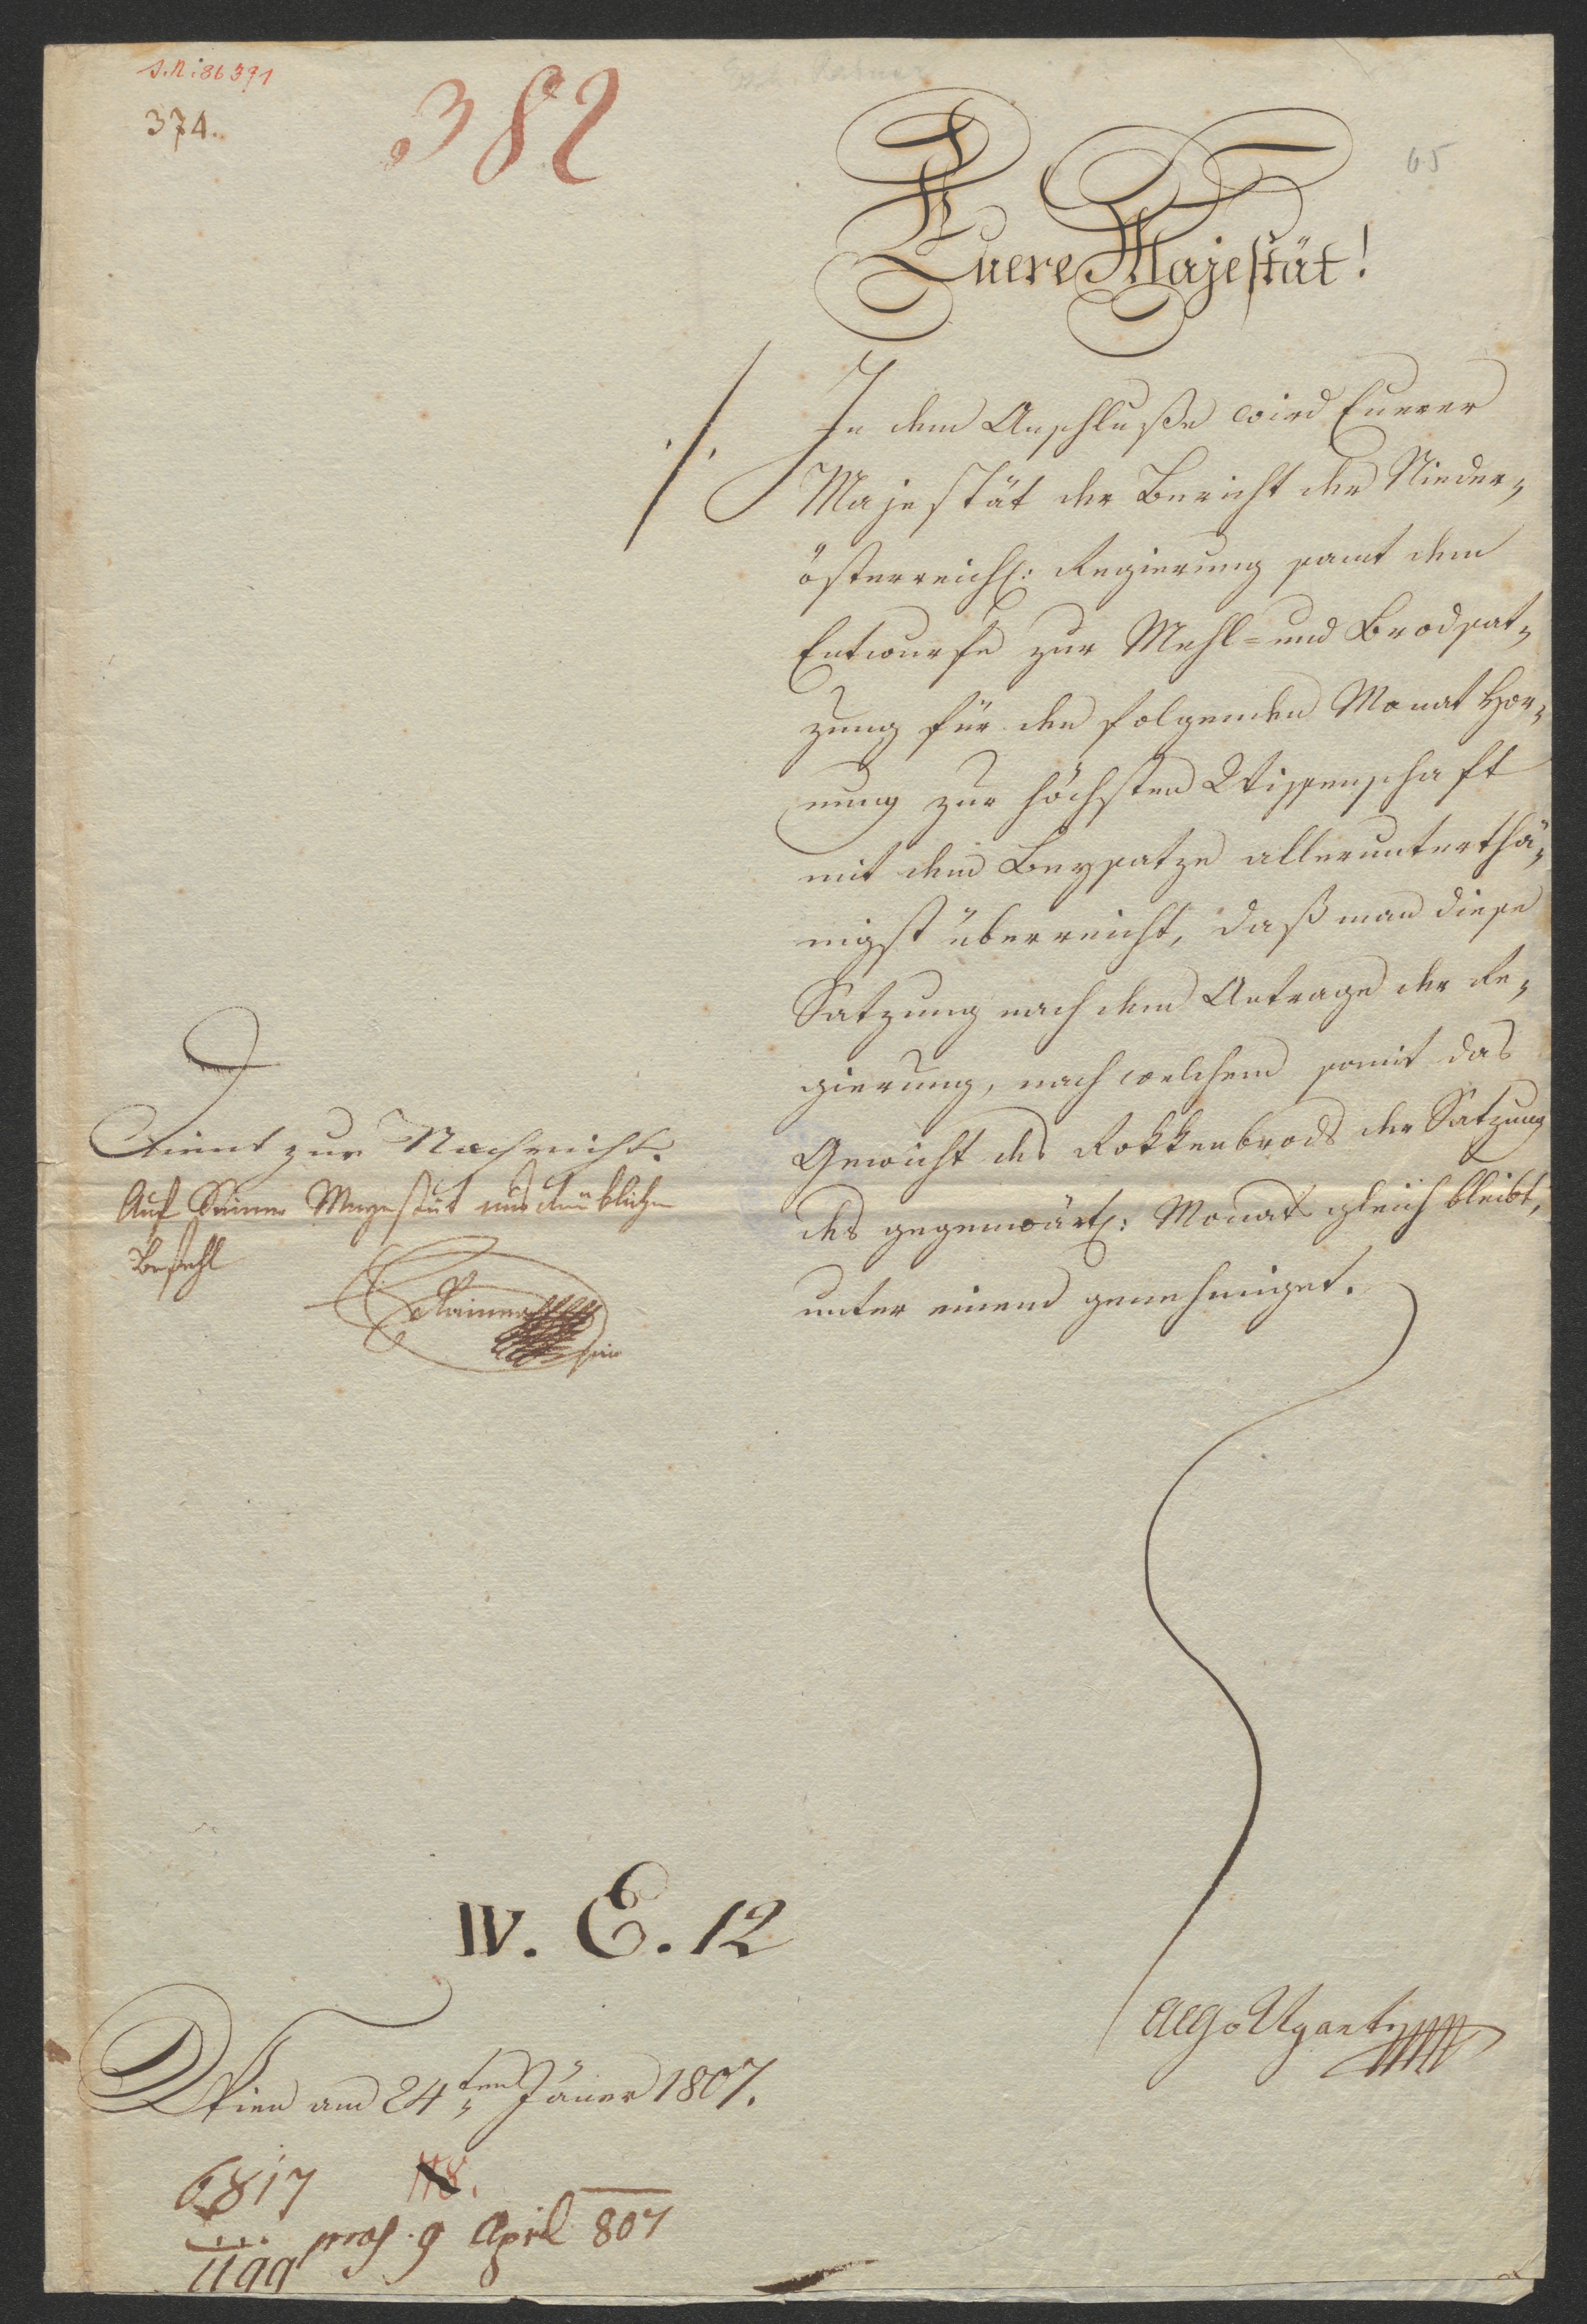 J.N: 86391
374.
382
65
Euere Majestät!
./.
In dem Anschluße wird Euerer
Majestät der Bericht der Nieder-
österreich: Regierung samt dem
Entwurfe zur Mehl- und Brodsat-
zung für den folgenden Monat Hor-
nung zur höchsten Wissenschaft
mit dem Beysatze allerunterthä-
nigst überreicht, daß man diese
Satzung nach dem Antrage der Re-
gierung, nach welchem somit das
Gewicht des Rokkenbrods der Satzung
des gegenwärt: Monats gleich bleibt,
unter einem genehmiget.
Dient zur Nachricht.
Auf Seiner Majestät ausdrüklichen
Befehl
Rainer
IV. E. 12
Ugarte
Wien am 24ten Jäner 1807.
6817
118.
1199
praes. 9 April 807